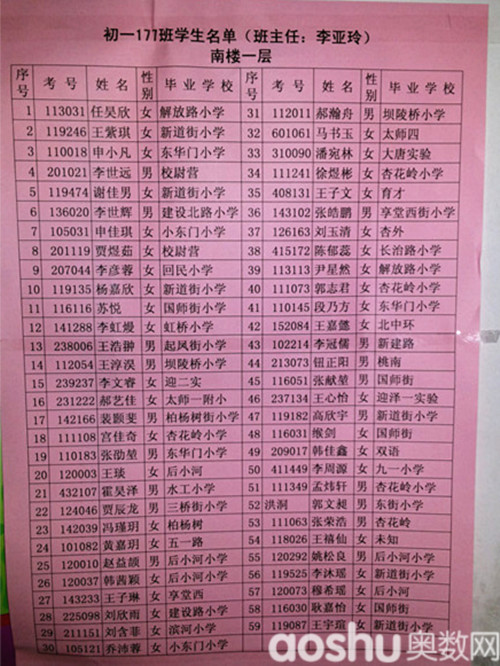 初一177班学生名单（班主任：李亚玲）
南楼一层
序号 考号 姓名 性别 毕业学校 序号 考号 姓名 性别 毕业学校
1 113031 任昊欣 女 解放路小学 31 112011 郝瀚舟 男 坝陵桥小学
2 119246 王紫琪 女 新道街小学 32 601061 马书玉 女 太师四
3 110018 申小凡 女 东华门小学 33 310090 潘宛林 女 大唐实验
4 201021 李世远 男 校尉营 34 111241 徐煜彬 女 杏花岭小学
5 119474 谢佳男 女 新道街小学 35 408131 王子文 女 育才
6 136020 李世辉 男 建设北路小学 36 143102 张皓鹏 男 享堂西街小学
7 105031 申佳琪 女 小东门小学 37 126163 刘玉清 女 杏外
8 201119 贾煜茹 女 校尉营 38 415172 陈郁蕊 女 长治路小学
9 207044 李彦蓉 女 回民小学 39 113113 尹星然 女 解放路小学
10 119135 杨嘉欣 女 新道街小学 40 111073 郭志君 女 杏花岭小学
11 116116 苏悦 女 国师街小学 41 110145 段乃方 女 东华门小学
12 141288 李虹熳 女 虹桥小学 42 152084 王嘉懿 女 北中环
13 238006 王浩翀 男 起凤街小学 43 102214 李冠儒 男 新建路
14 112054 王淳淏 男 坝陵桥小学 44 213073 钮正阳 男 桃南
15 239237 李文睿 女 迎二实 45 116051 张献堃 男 国师街
16 231222 郝艺佳 女 太师一附小 46 237134 王心怡 女 迎泽一实验
17 142166 裴颢斐 男 柏杨树街小学 47 119182 高欣宇 男 新道街小学
18 111108 宫佳奇 女 杏花岭小学 48 116031 缑剑 女 国师街
19 110183 张劭堃 男 东华门小学 49 209017 韩佳鑫 女 双语
20 120003 王琰 女 后小河 50 411449 李周源 女 九一小学
21 432107 霍昊泽 男 水工小学 51 111313 孟炜轩 男 杏花岭小学
22 124046 贾辰龙 男 三桥街小学 52 洪洞 郭文昶 男 东街小学
23 142039 冯瑾玥 女 柏杨树 53 111063 张荣浩 男 杏花岭
24 101082 黄嘉玥 女 五一路 54 118026 王禧仙 女 未知
25 120010 赵益颉 男 后小河小学 55 120292 姚松良 男 后小河小学
26 120037 韩茜颖 女 后小河小学 56 119525 李沐瑶 女 新道街小学
27 143233 王子琳 女 享堂西 57 120073 穆希瑶 女 后小河
28 225098 刘欣雨 女 建设路小学 58 116030 耿嘉怡 女 国师街
29 211151 刘含菲 女 滨河小学 59 119087 王宇瑄 女 新道街小学
30 105121 乔沛蓉 女 小东门小学
aoshu奥数网